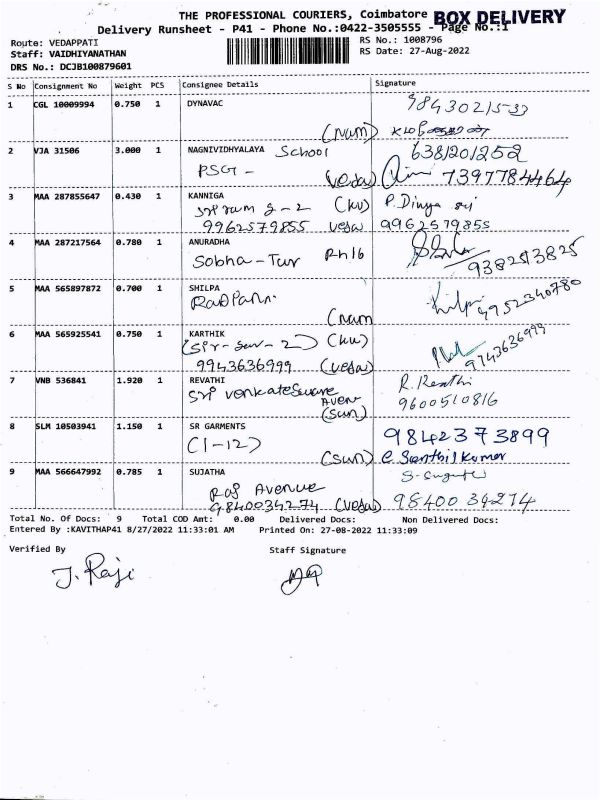 THE PROFESSIONAL COURIERS, Coimbatore BOX DELIVERY
Delivery Runsheet - P41 - Phone No.:0422-3505555 - Page No.:1
Route: VEDAPPATI RS No.: 1008796
Staff: VAIDHIYANATHAN RS Date: 27-Aug-2022
DRS No.: DCJB100879601
S No Consignment No Weight PCS Consignee Details Signature
1 CGL 10009994 0.750 1 DYNAVAC
(Num)
2 VJA 31506 3.000 1 NAGNIVIDHYALAYA School 6381201252
PSG - (veda) 7397784464
3 MAA 287855647 0.430 1 KANNIGA (KU) P. Divya sri
Sri ram g-2
9962579855 veda 9962579855
4 MAA 287217564 0.780 1 ANURADHA
Sobha-Tur 9382513825
5 MAA 565897872 0.700 1 SHILPA 9952340780
(Num
6 MAA 565925541 0.750 1 KARTHIK (KU)
9943636999 (veda) 9743636999
7 VNB 536841 1.920 1 REVATHI R. Revathi
Sri Venkateswara Aven 9600510816
(Sun)
8 SLM 10503941 1.150 1 SR GARMENTS 9842373899
(1-12)
(Sun) C. Senthil Kumar
9 MAA 566647992 0.785 1 SUJATHA
Raj Avenue
9840034274 (veda) 9840034274
Total No. Of Docs: 9 Total COD Amt: 0.00 Delivered Docs: Non Delivered Docs:
Entered By :KAVITHAP41 8/27/2022 11:33:01 AM Printed On: 27-08-2022 11:33:09
Verified By Staff Signature
J. Raji